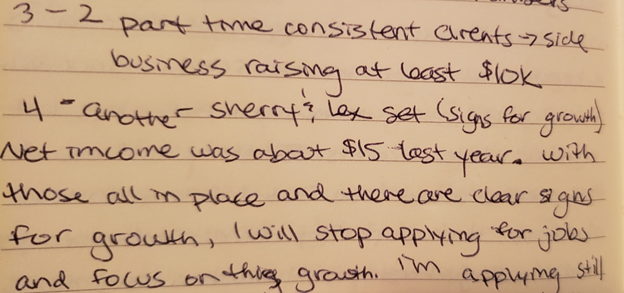 3 - 2 part time consistent clients → side
business raising at least $10K
4 - another sherry & lex set (signs for growth)
Net income was about $15 last year. With
those all in place and there are clear signs
for growth, I will stop applying for jobs
and focus on growth. I'm applying still